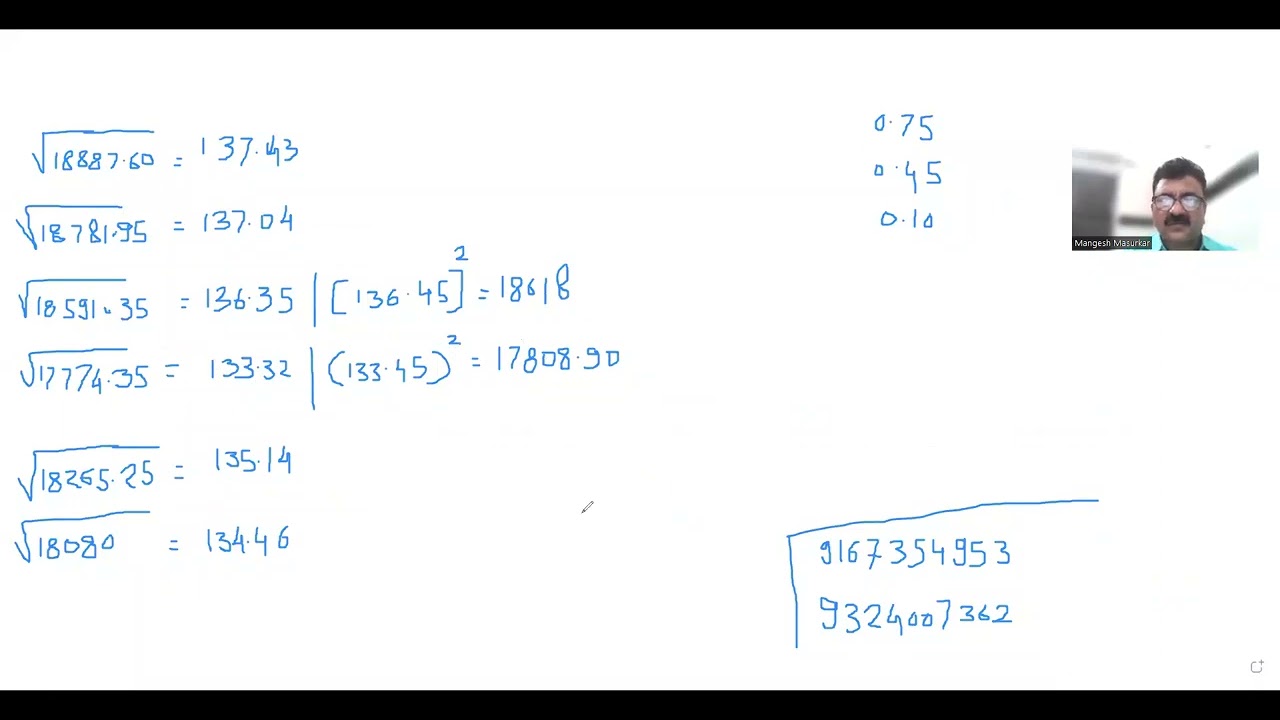 √18887.60 = 137.43
√18781.95 = 137.04
√18591.35 = 136.35 | [136.45]² = 18618
√17774.35 = 133.32 | (133.45)² = 17808.90
√18265.25 = 135.14
√18080 = 134.46
0.75
0.45
0.10
Mangesh Masurkar
9167354953
9324007362